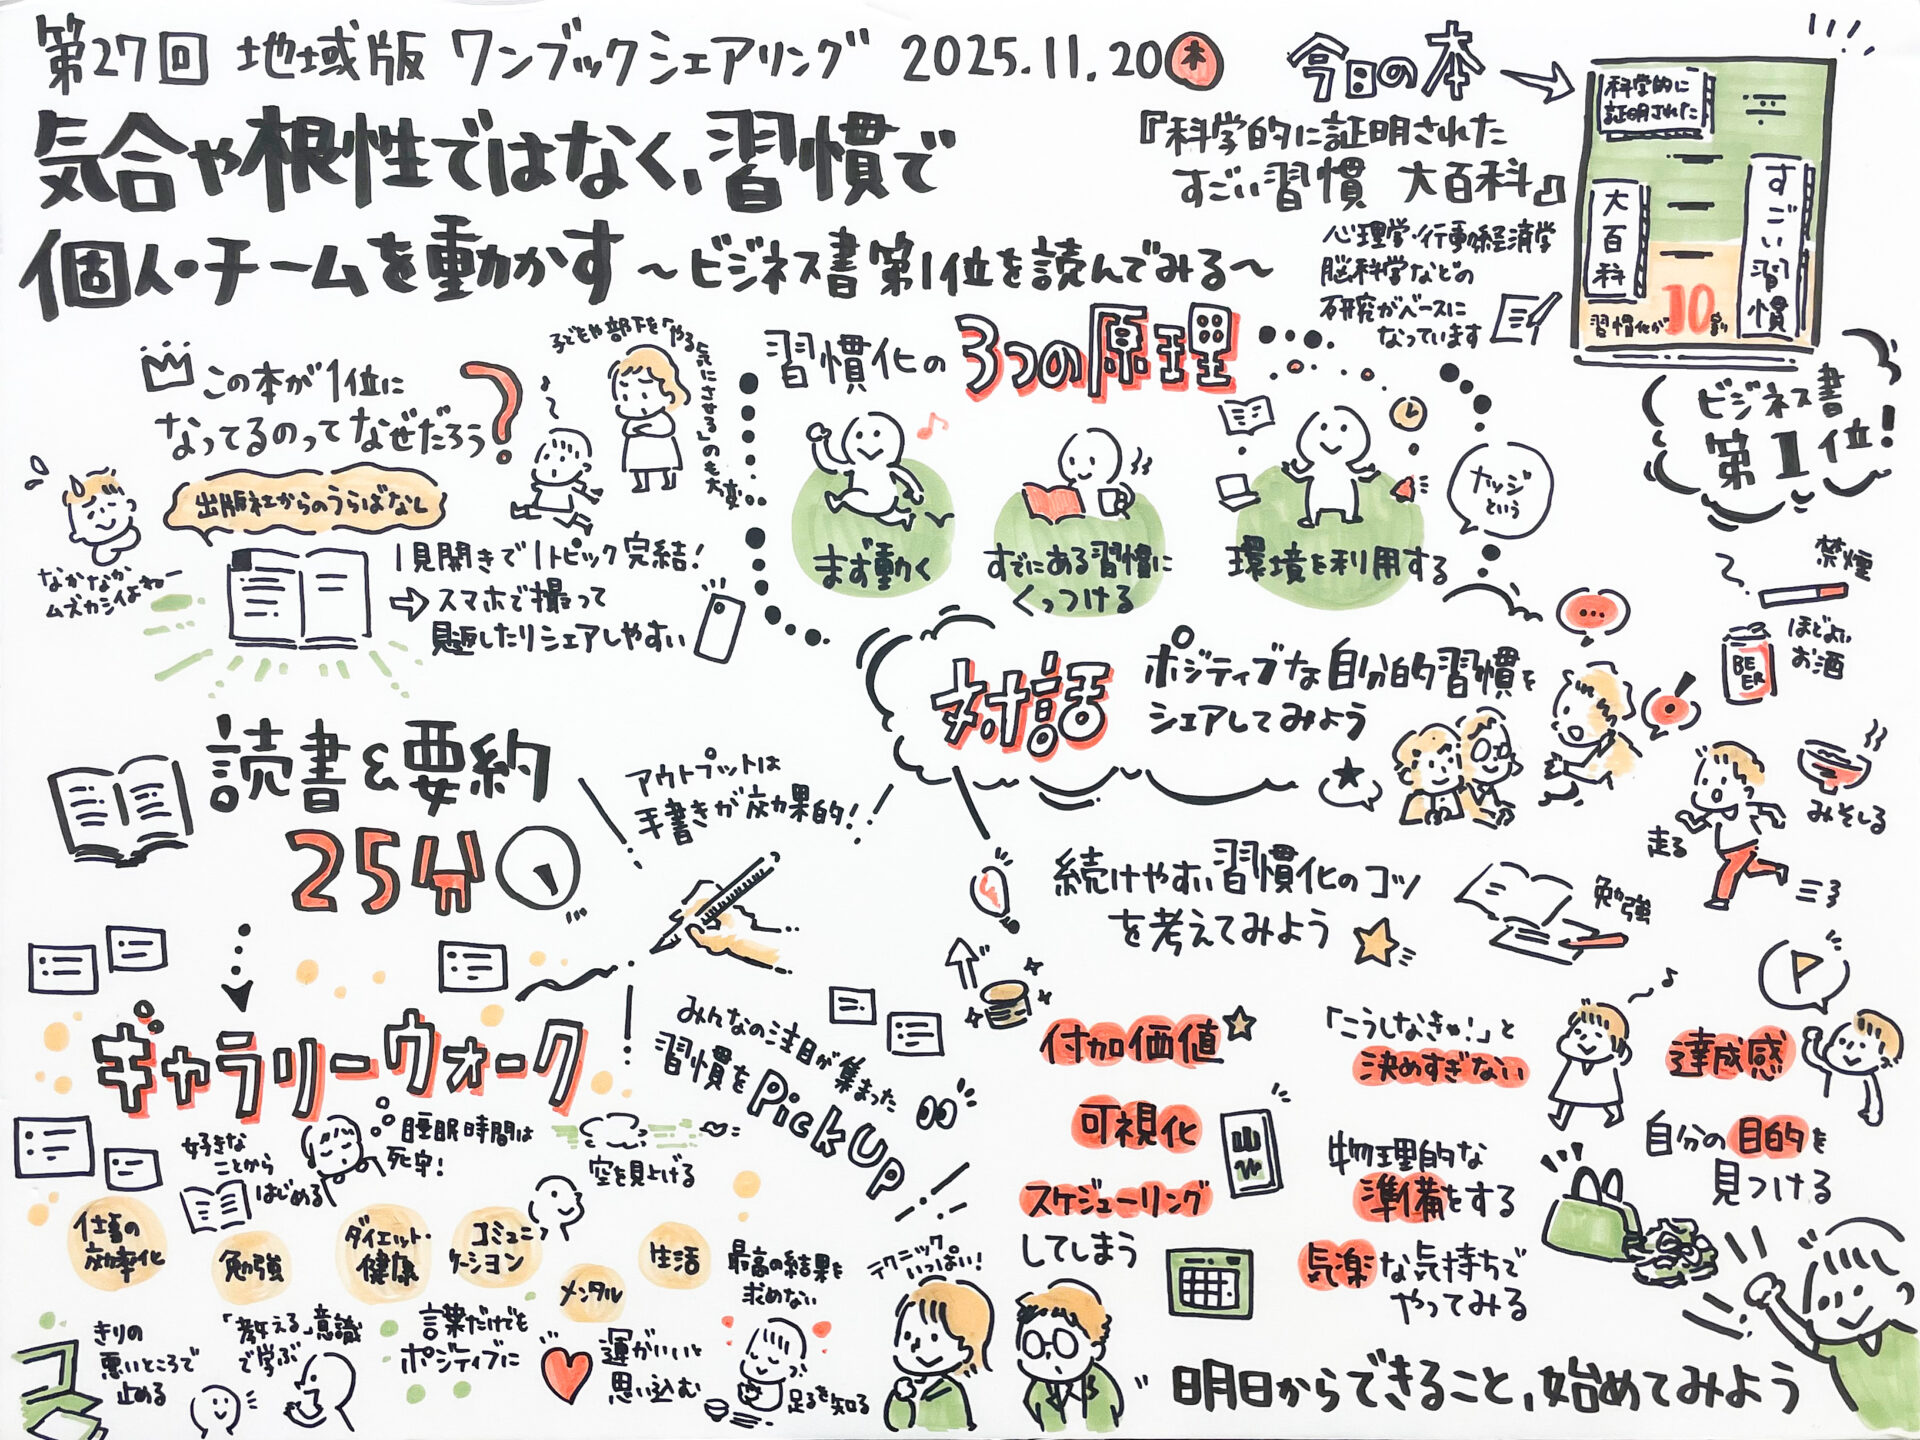 第27回 地域版 ワンブックシェアリング 2025.11.20 木
気合や根性ではなく、習慣で
個人・チームを動かす 〜ビジネス書第1位を読んでみる〜
今日の本
『科学的に証明された
すごい習慣 大百科』
心理学・行動経済学
脳科学などの
研究がベースに
なっています
科学的に
証明された
すごい習慣
大百科
習慣化が10割
ビジネス書
第1位!
この本が1位に
なってるのってなぜだろう?
出版社からのうらばなし
なかなか
ムズカシイよねー
子どもや部下を「やる気にさせる」のも大変
1見開きで1トピック完結!
→スマホで撮って
見返したりシェアしやすい
習慣化の3つの原理
まず動く
すでにある習慣に
くっつける
環境を利用する
ナッジ
という
対話
ポジティブな自分的習慣を
シェアしてみよう
禁煙
ほどよい
お酒
BE
ER
みそしる
走る
勉強
続けやすい習慣化のコツ
を考えてみよう
読書&要約
25分
アウトプットは
手書きが効果的!
ギャラリーウォーク
みんなの注目が集まった
習慣をPick Up
好きな
ことから
はじめる
睡眠時間は
死守!
空を見上げる
仕事の
効率化
勉強
ダイエット・
健康
コミュニ
ケーション
メンタル
生活
きりの
悪いところで
止める
「教える」意識
で学ぶ
言葉だけでも
ポジティブに
運がいいと
思い込む
最高の結果を
求めない
足るを知る
テクニック
いっぱい!
付加価値
可視化
スケジューリング
してしまう
「こうしなきゃ!」と
決めすぎない
物理的な
準備をする
気楽な気持ちで
やってみる
達成感
自分の目的を
見つける
明日からできること、始めてみよう